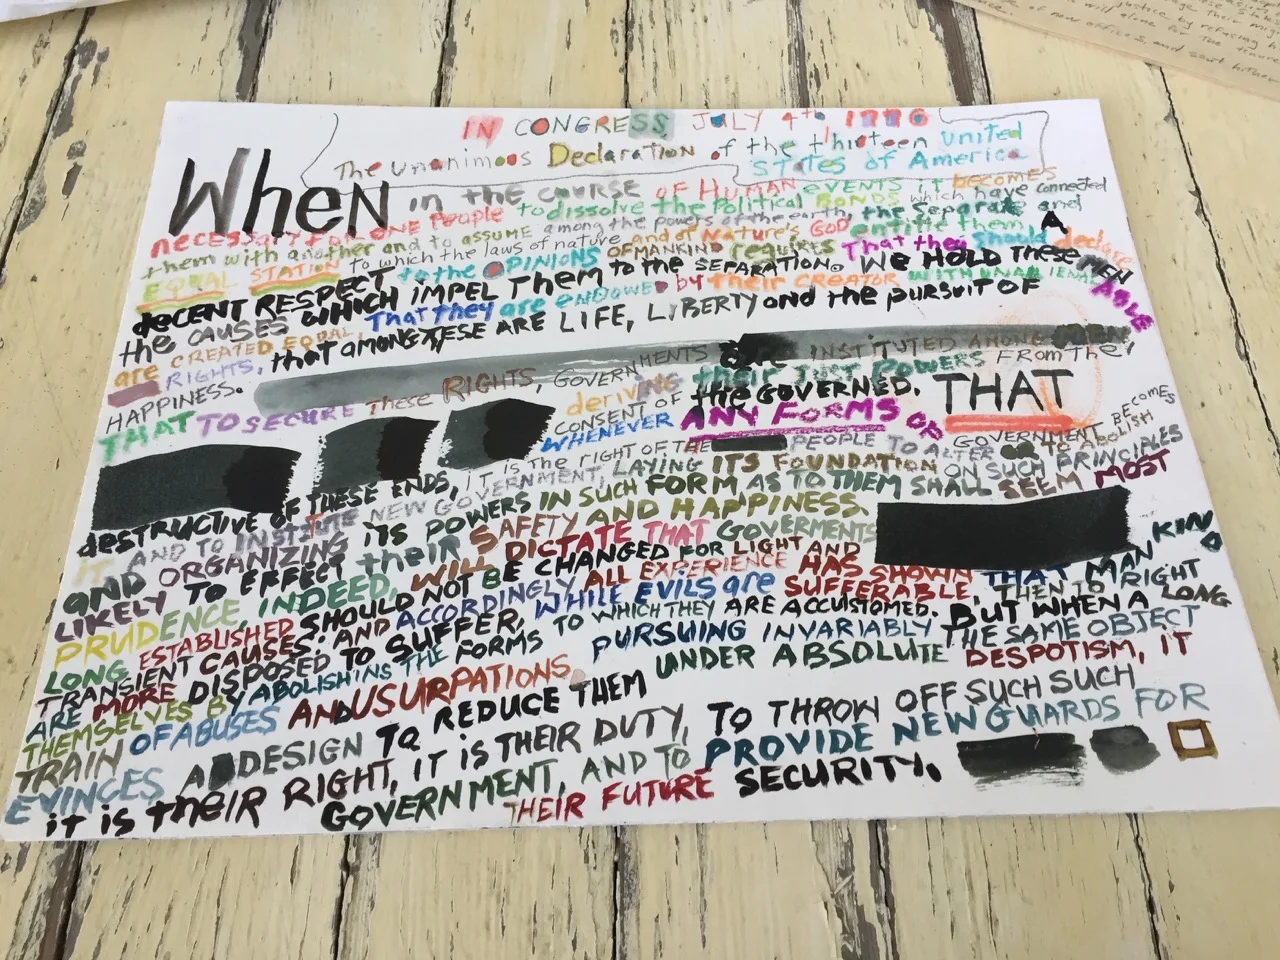 IN CONGRESS JULY 4th 1776
The unanimous Declaration of the thirteen united
States of America
When in the course of Human events it becomes
necessary for one People to dissolve the Political BONDS which have connected
them with another and to ASSUME among the powers of the earth, the separate and
EQUAL STATION to which the laws of nature and of Nature's GOD entitle them, A
decent RESPECT to the OPINIONS OF MANKIND requires That they should declare
the CAUSES WHICH IMPEL Them to the SEPARATION. We HOLD These
are CREATED EQUAL, That they are endowed by their CREATOR WITH
RIGHTS, that among these ARE LIFE, LIBERTY and the pursuit of
HAPPINESS.
THAT TO SECURE These RIGHTS, GOVERNMENTS are INSTITUTED AMONG MEN
deriving their JUST POWERS FROM The
CONSENT OF the GOVERNED. THAT
WHENEVER ANY FORMS OF GOVERNMENT BECOMES
destructive of THESE ENDS, IT IS THE RIGHT OF THE PEOPLE TO ALTER OR TO ABOLISH
IT AND TO INSTITUTE NEW GOVERNMENT, LAYING ITS FOUNDATION ON SUCH PRINCIPLES
AND ORGANIZING ITS POWERS IN SUCH FORM AS TO THEM SHALL SEEM MOST
LIKELY TO EFFECT their SAFETY AND HAPPINESS.
PRUDENCE, INDEED, WILL DICTATE THAT GOVERMENTS
LONG ESTABLISHED SHOULD NOT BE CHANGED FOR LIGHT AND
TRANSIENT CAUSES: AND ACCORDINGLY ALL EXPERIENCE HAS SHOWN THAT MANKIND
ARE MORE DISPOSED TO SUFFER, WHILE EVILS are SUFFERABLE, THEN TO RIGHT
THEMSELVES BY ABOLISHING THE FORMS TO WHICH THEY ARE ACCUSTOMED. BUT WHEN A LONG
TRAIN OF ABUSES AND USURPATIONS, PURSUING INVARIABLY THE SAME OBJECT
EVINCES A DESIGN TO REDUCE THEM UNDER ABSOLUTE DESPOTISM, IT
it is their RIGHT, IT IS THEIR DUTY, TO THROW OFF SUCH SUCH
GOVERNMENT, AND TO PROVIDE NEW GUARDS FOR
THEIR FUTURE SECURITY.